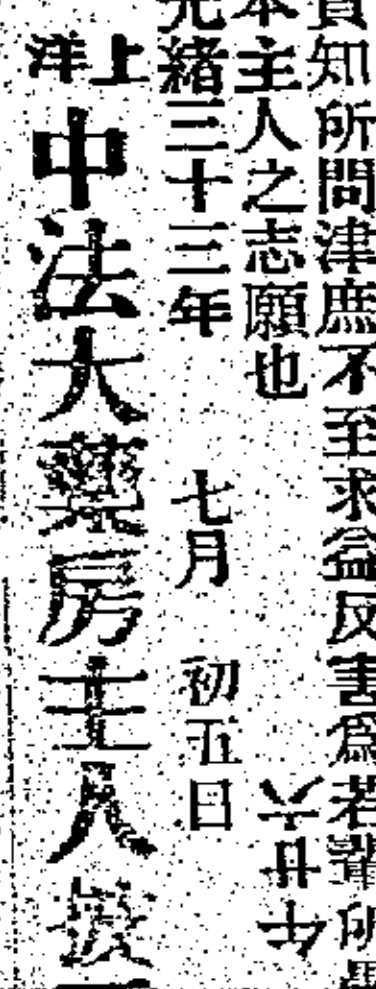 知所問津庶不至求益反害為若輩所
主人之志願也
光緒三十三年 七月 初五日
上洋 中法大藥房主人